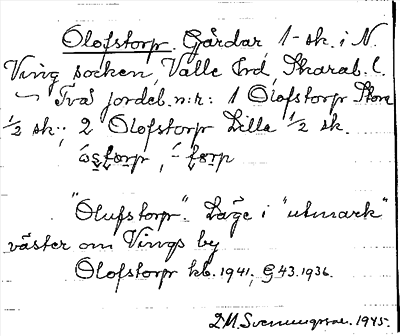 Olofstorp. Gårdar, 1 sk. i N.
Ving socken, Valle hd, Skarab. l.
~ Två jordeb.n:r: 1 Olofstorp Stora
½ sk.; 2 Olofstorp Lilla ½ sk.
"Olufstorp". Läge i "utmark"
väster om Vings by
Olofstorp kb. 1941, G 43. 1936.
D.M. Svenningsson. 1945.